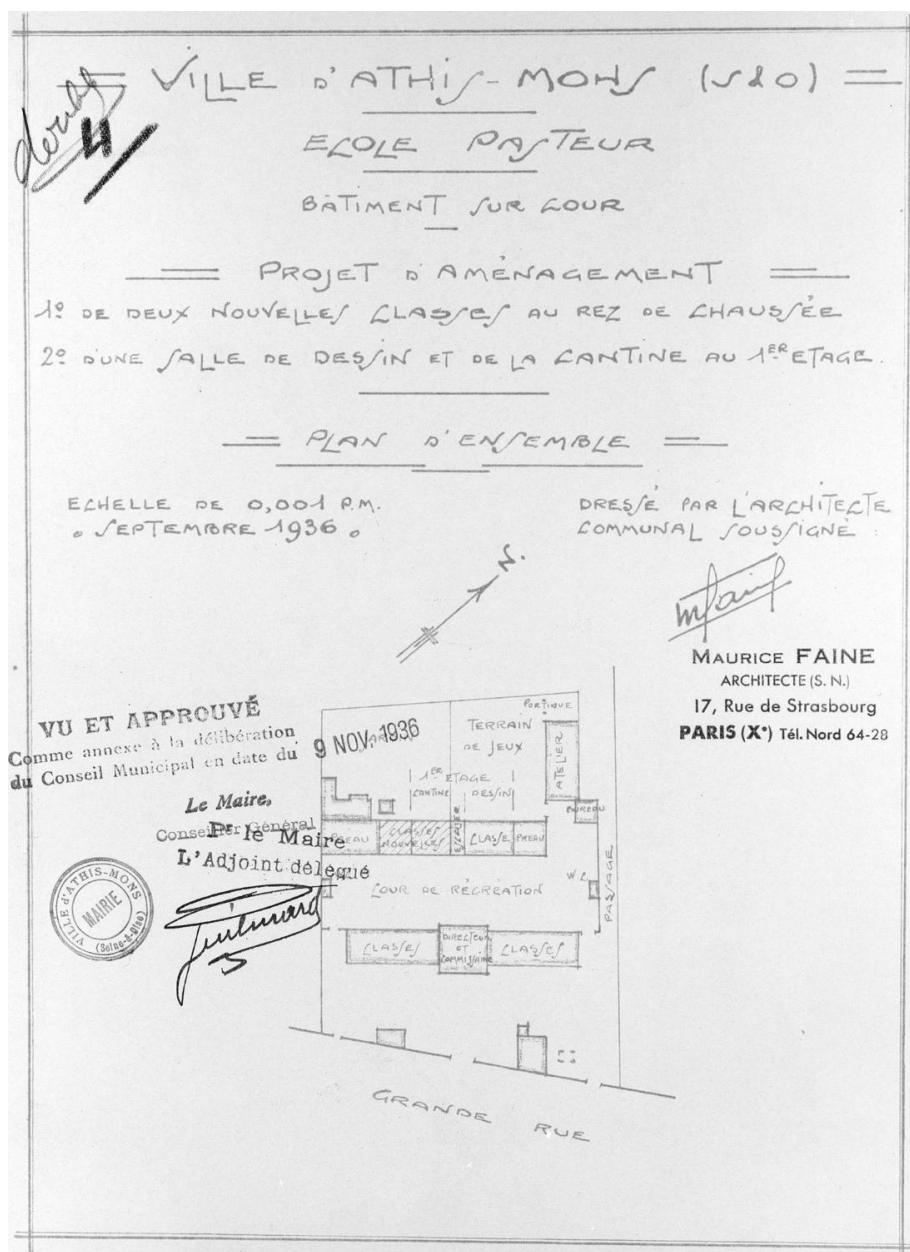 double
4
VILLE D'ATHIS-MONS (S&O)
ECOLE PASTEUR
BÂTIMENT SUR COUR
PROJET D'AMÉNAGEMENT
1º DE DEUX NOUVELLES CLASSES AU REZ DE CHAUSSÉE
2º D'UNE SALLE DE DESSIN ET DE LA CANTINE AU 1ER ETAGE.
PLAN D'ENSEMBLE
ECHELLE DE 0,001 P.M.
SEPTEMBRE 1936
DRESSÉ PAR L'ARCHITECTE
COMMUNAL SOUSSIGNÉ
N.
MAURICE FAINE
ARCHITECTE (S. N.)
17, Rue de Strasbourg
PARIS (Xe) Tél. Nord 64-28
VU ET APPROUVÉ
Comme annexe à la délibération
du Conseil Municipal en date du 9 NOV. 1936
Le Maire,
Conseiller Général
Pr le Maire
L'Adjoint délégué
VILLE d'ATHIS-MONS
MAIRIE
(Seine-&-Oise)
PORTIQUE
TERRAIN
DE JEUX
ATELIER
1ER ETAGE
CANTINE
DESSIN
BUREAU
PREAU
CLASSES
NOUVELLES
ESCALIER
CLASSE
PREAU
W C
PASSAGE
COUR DE RÉCRÉATION
CLASSES
DIRECTEUR
ET
COMMISSAIRE
CLASSES
GRANDE RUE